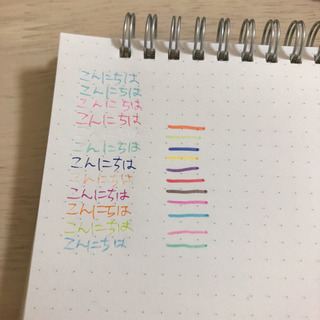 こんにちは
こんにちは
こんにちは
こんにちは
こんにちは
こんにちは
こんにちは
こんにちは
こんにちは
こんにちは
こんにちは